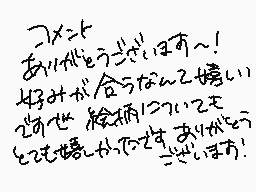 コメント
ありがとうございます〜!
好みが合うなんて嬉しい
ですぜ 絵柄についても
とても嬉しかったです ありがとう
ございます!